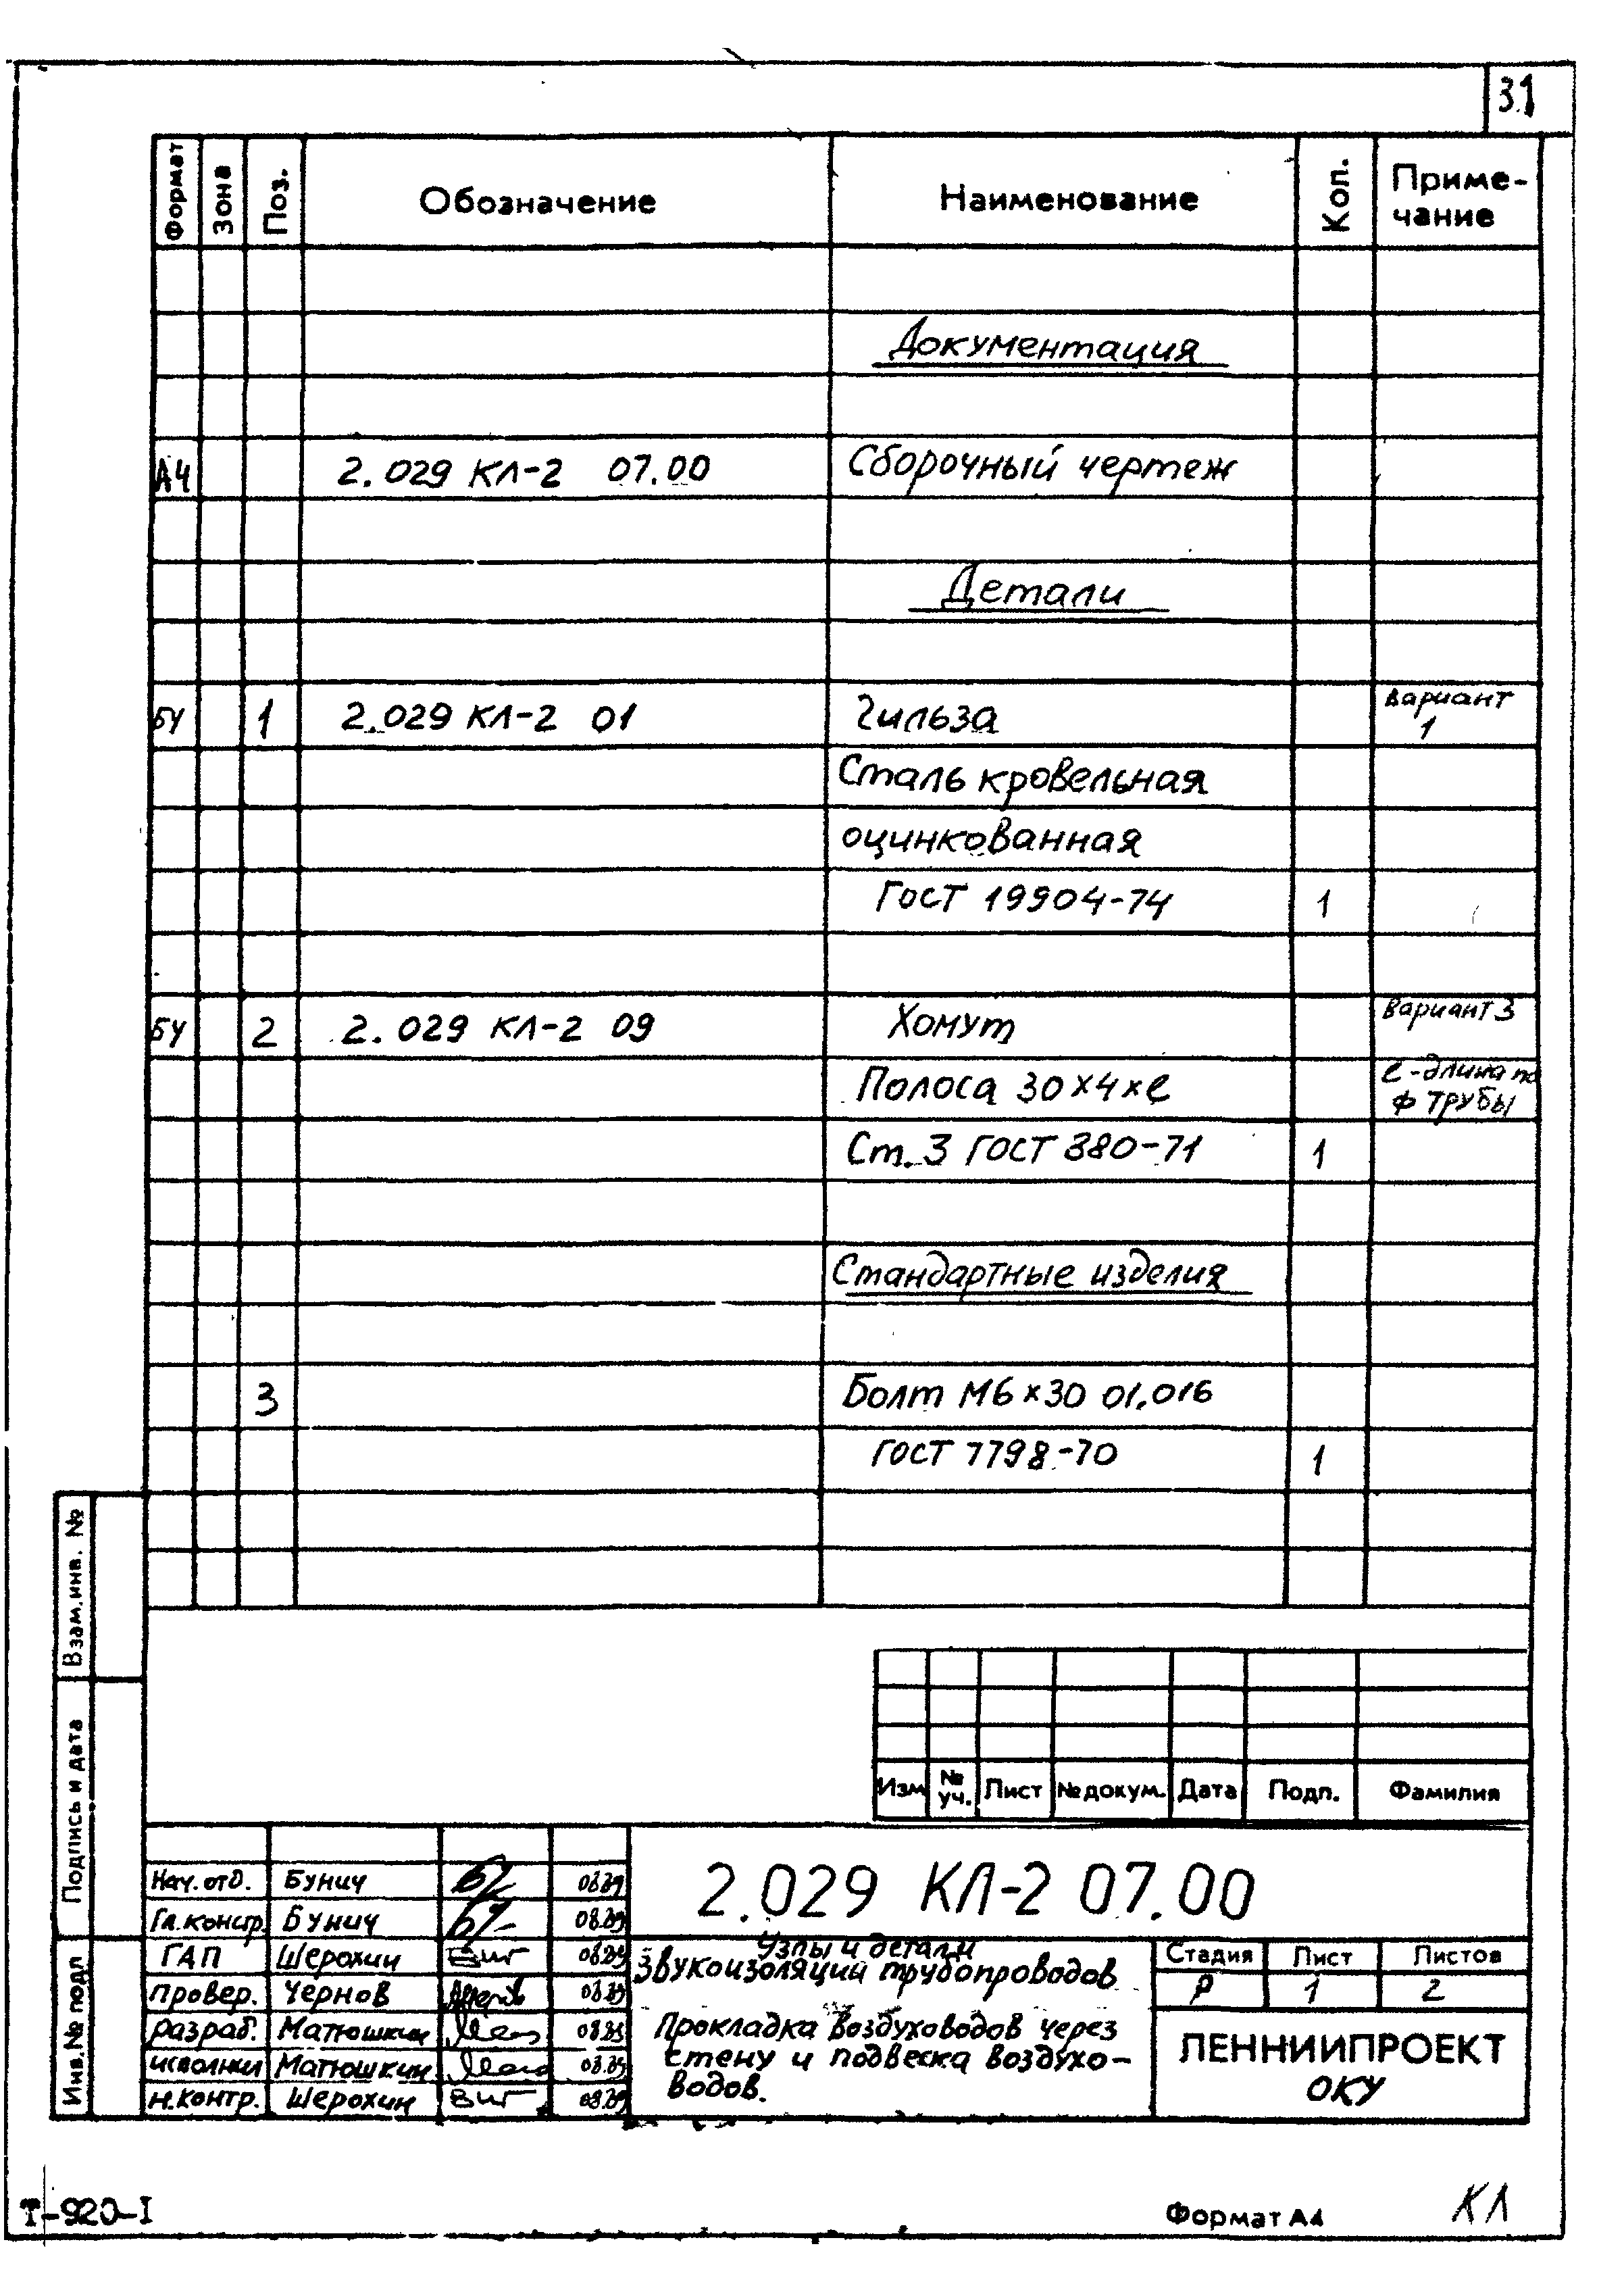 31
Формат Зона Поз. Обозначение Наименование Кол. Приме-
чание
Документация
А4 2.029 КЛ-2 07.00 Сборочный чертеж
Детали
БЧ 1 2.029 КЛ-2 01 Гильза вариант
1
Сталь кровельная
оцинкованная
ГОСТ 19904-74 1
БЧ 2 2.029 КЛ-2 09 Хомут вариант 3
Полоса 30х4хℓ ℓ-длина по
ф трубы
Ст.3 ГОСТ 380-71 1
Стандартные изделия
3 Болт М6х30 01.016
ГОСТ 7798-70 1
Взам.инв. №
Подпись и дата
Инв.№ подл
Изм № уч. Лист №докум. Дата Подп. Фамилия
2.029 КЛ-2 07.00
Нач.отд. Бунич
Гл.констр. Бунич
ГАП Шерохин
провер. Чернов
разраб. Матюшкин
исполнил Матюшкин
н.контр. Шерохин
Узлы и детали
звукоизоляции трубопроводов
Прокладка воздуховодов через
стену и подвеска воздухо-
водов.
Стадия Лист Листов
Р 1 2
ЛЕННИИПРОЕКТ
ОКУ
Т-920-I
Формат А4
КЛ